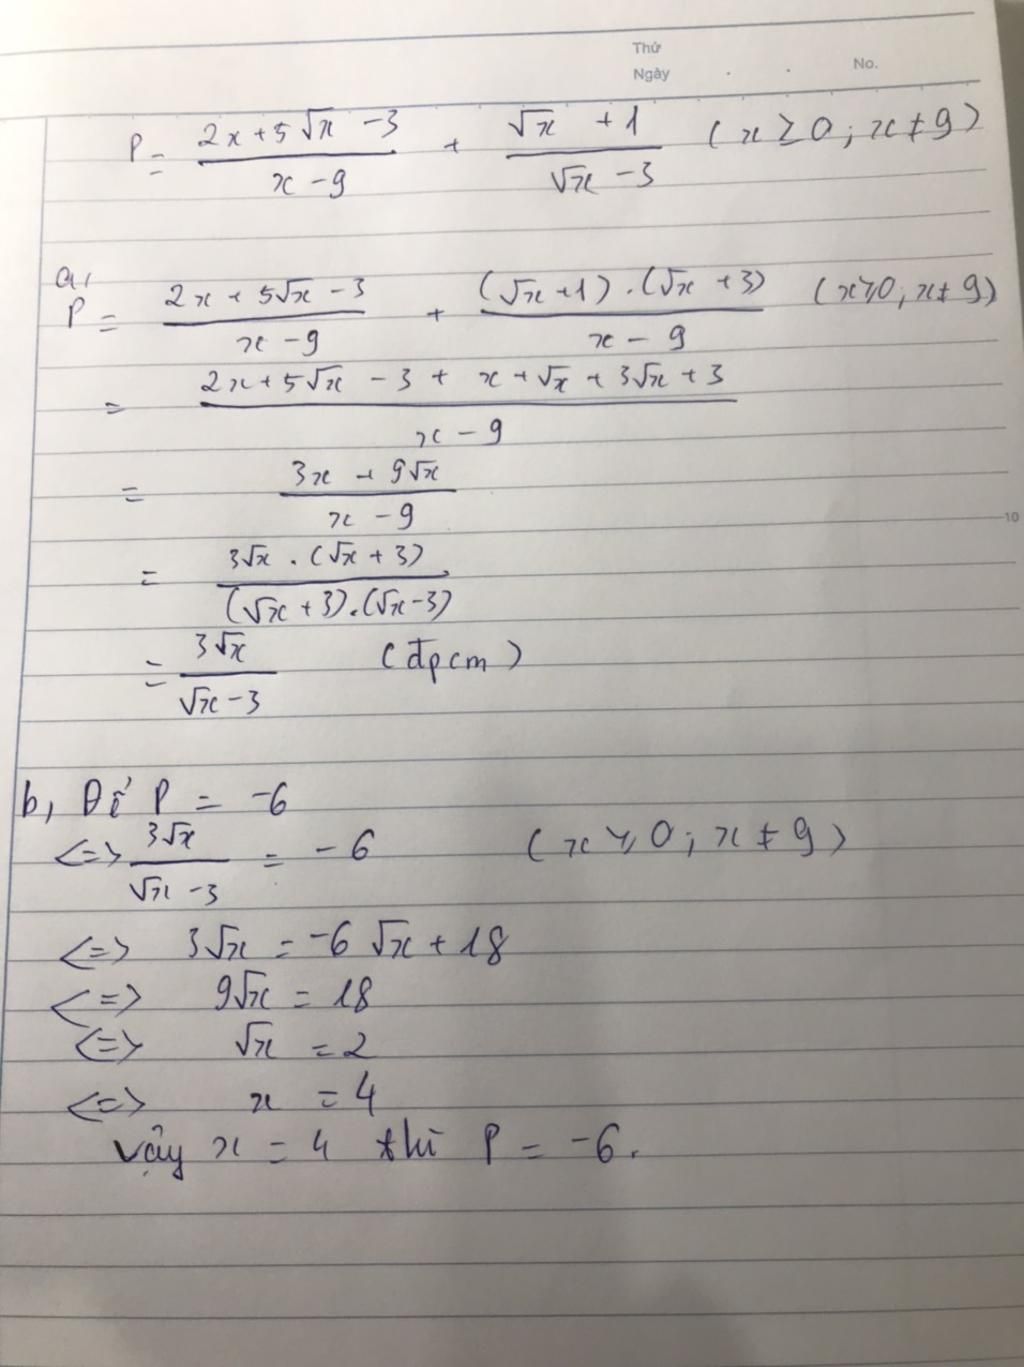 Thứ
Ngày . . No.
P = (2x + 5√x - 3)/(x - 9) + (√x + 1)/(√x - 3) (x ≥ 0; x ≠ 9)
a,
P = (2x + 5√x - 3)/(x - 9) + ((√x + 1).(√x + 3))/(x - 9) (x ≥ 0; x ≠ 9)
= (2x + 5√x - 3 + x + √x + 3√x + 3)/(x - 9)
= (3x + 9√x)/(x - 9)
10
= (3√x . (√x + 3))/((√x + 3).(√x - 3))
= (3√x)/(√x - 3) (đpcm)
b, Để P = -6
<=> (3√x)/(√x - 3) = -6 (x ≥ 0; x ≠ 9)
<=> 3√x = -6√x + 18
<=> 9√x = 18
<=> √x = 2
<=> x = 4
Vậy x = 4 thì P = -6.